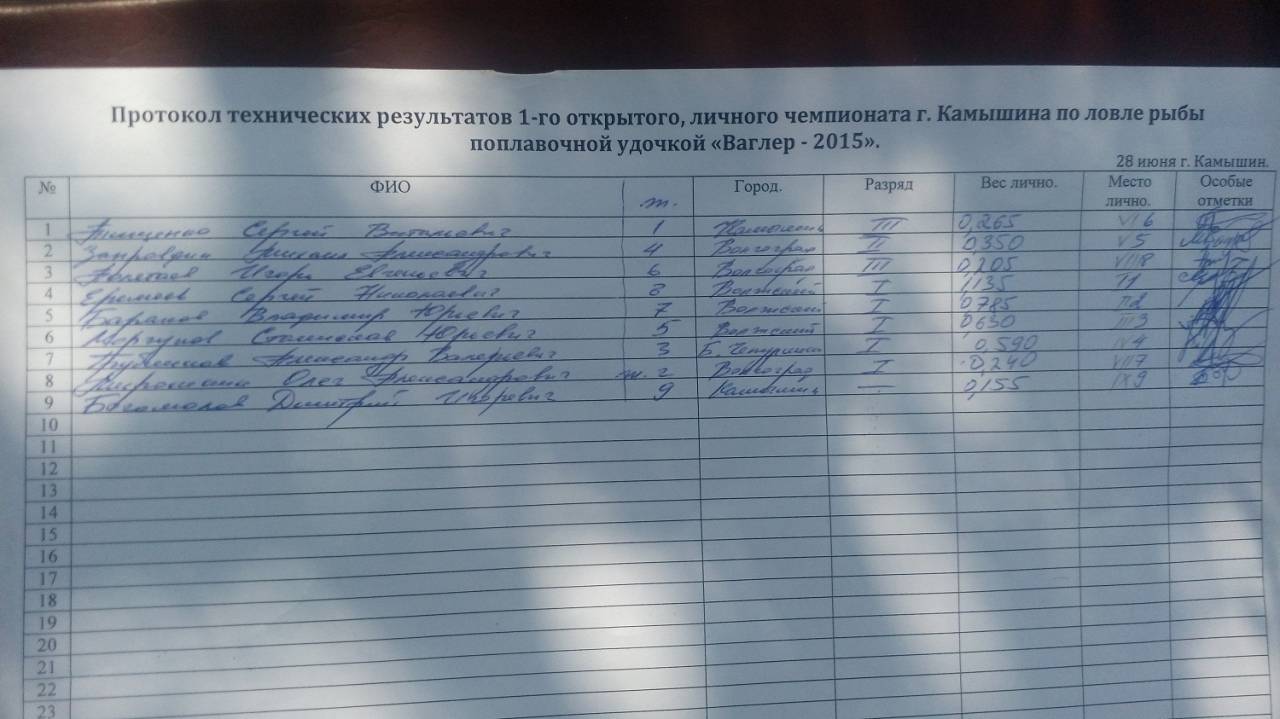 Протокол технических результатов 1-го открытого, личного чемпионата г. Камышина по ловле рыбы
поплавочной удочкой «Ваглер - 2015».
28 июня г. Камышин.
№ ФИО т. Город. Разряд Вес лично. Место лично. Особые отметки
1 Тищенко Сергей Витальевич 1 Камышин III 0,265 VI 6
2 Михаил Александрович 4 Волгоград II 0,350 V 5
3 Игорь Евгеньевич 6 Волгоград III 0,205 VIII 8
4 Еремеев Сергей Николаевич 8 Волжский I 1,135 I 1
5 Баранов Владимир Юрьевич 7 Волжский I 0,785 II 2
6 Моргунов Станислав Юрьевич 5 Волжский I 0,630 III 3
7 Александр Валериевич 3 Б. I 0,590 IV 4
8 Олег Александрович т. 2 Волгоград I 0,240 VII 7
9 Богомолов Дмитрий Игоревич 9 Камышин — 0,155 IX 9
10
11
12
13
14
15
16
17
18
19
20
21
22
23